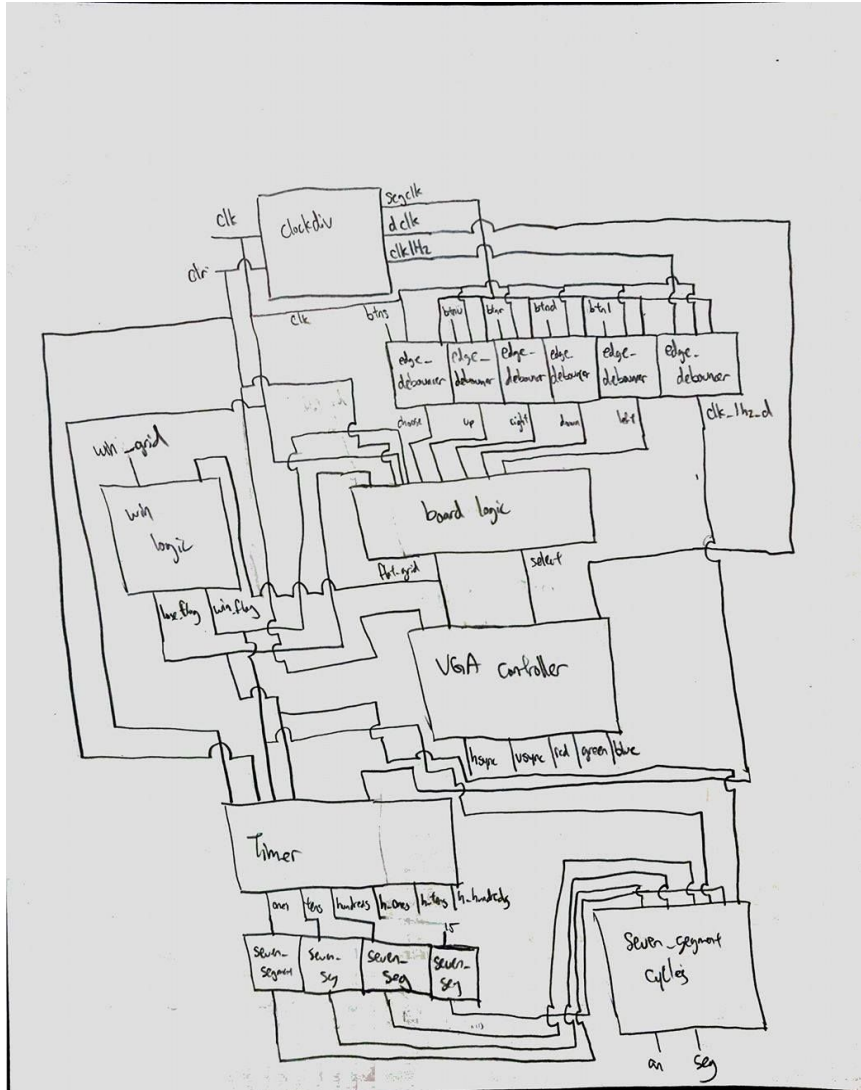 segclk
clk
clockdiv
dclk
clk1Hz
clr
clk
btns
btnu
btnr
btnd
btnl
edge_
debouncer
edge_
debouncer
edge_
debouncer
edge_
debouncer
edge_
debouncer
edge_
debouncer
choose
up
right
down
left
clk_1hz_d
win_grid
win
logic
board logic
flat_grid
select
lose_flag
win_flag
VGA controller
hsync
vsync
red
green
blue
Timer
ones
tens
hundreds
h_ones
h_tens
h_hundreds
15
seven_
segment
seven_
seg
seven_
seg
seven_
seg
seven_segment
cycles
an
seg